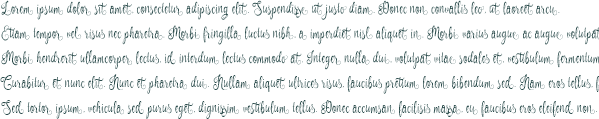 Lorem ipsum dolor sit amet, consectetur adipiscing elit. Suspendisse ut justo diam. Donec non convallis leo, ut laoreet arcu.
Etiam tempor vel risus nec pharetra. Morbi fringilla luctus nibh, a imperdiet nisl aliquet in. Morbi varius augue ac augue volutpat
Morbi hendrerit ullamcorper lectus, id interdum lectus commodo at. Integer nulla dui, volutpat vitae sodales et, vestibulum fermentum
Curabitur et nunc elit. Nunc et pharetra dui. Nullam aliquet ultrices risus, faucibus pretium lorem bibendum sed. Nam eros tellus, f
Sed tortor ipsum, vehicula sed purus eget, dignissim vestibulum tellus. Donec accumsan facilisis massa, eu faucibus eros eleifend non.